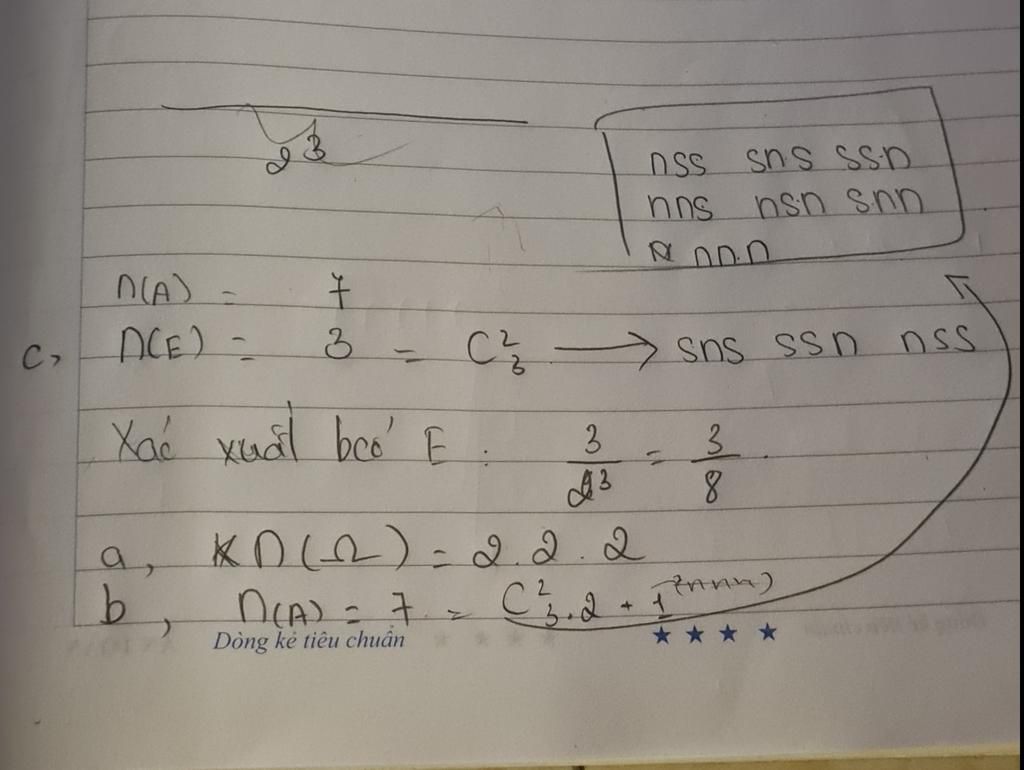 2³
nss sns ssn
nns nsn snn
nnn
n(A) = 7
c, n(E) = 3 = C²₃ → sns ssn nss
Xác xuất bcó E : 3/2³ = 3/8
a, n(Ω) = 2.2.2
b, n(A) = 7 = C²₃.2 + 1 (nnn)
Dòng kẻ tiêu chuẩn ★ ★ ★ ★